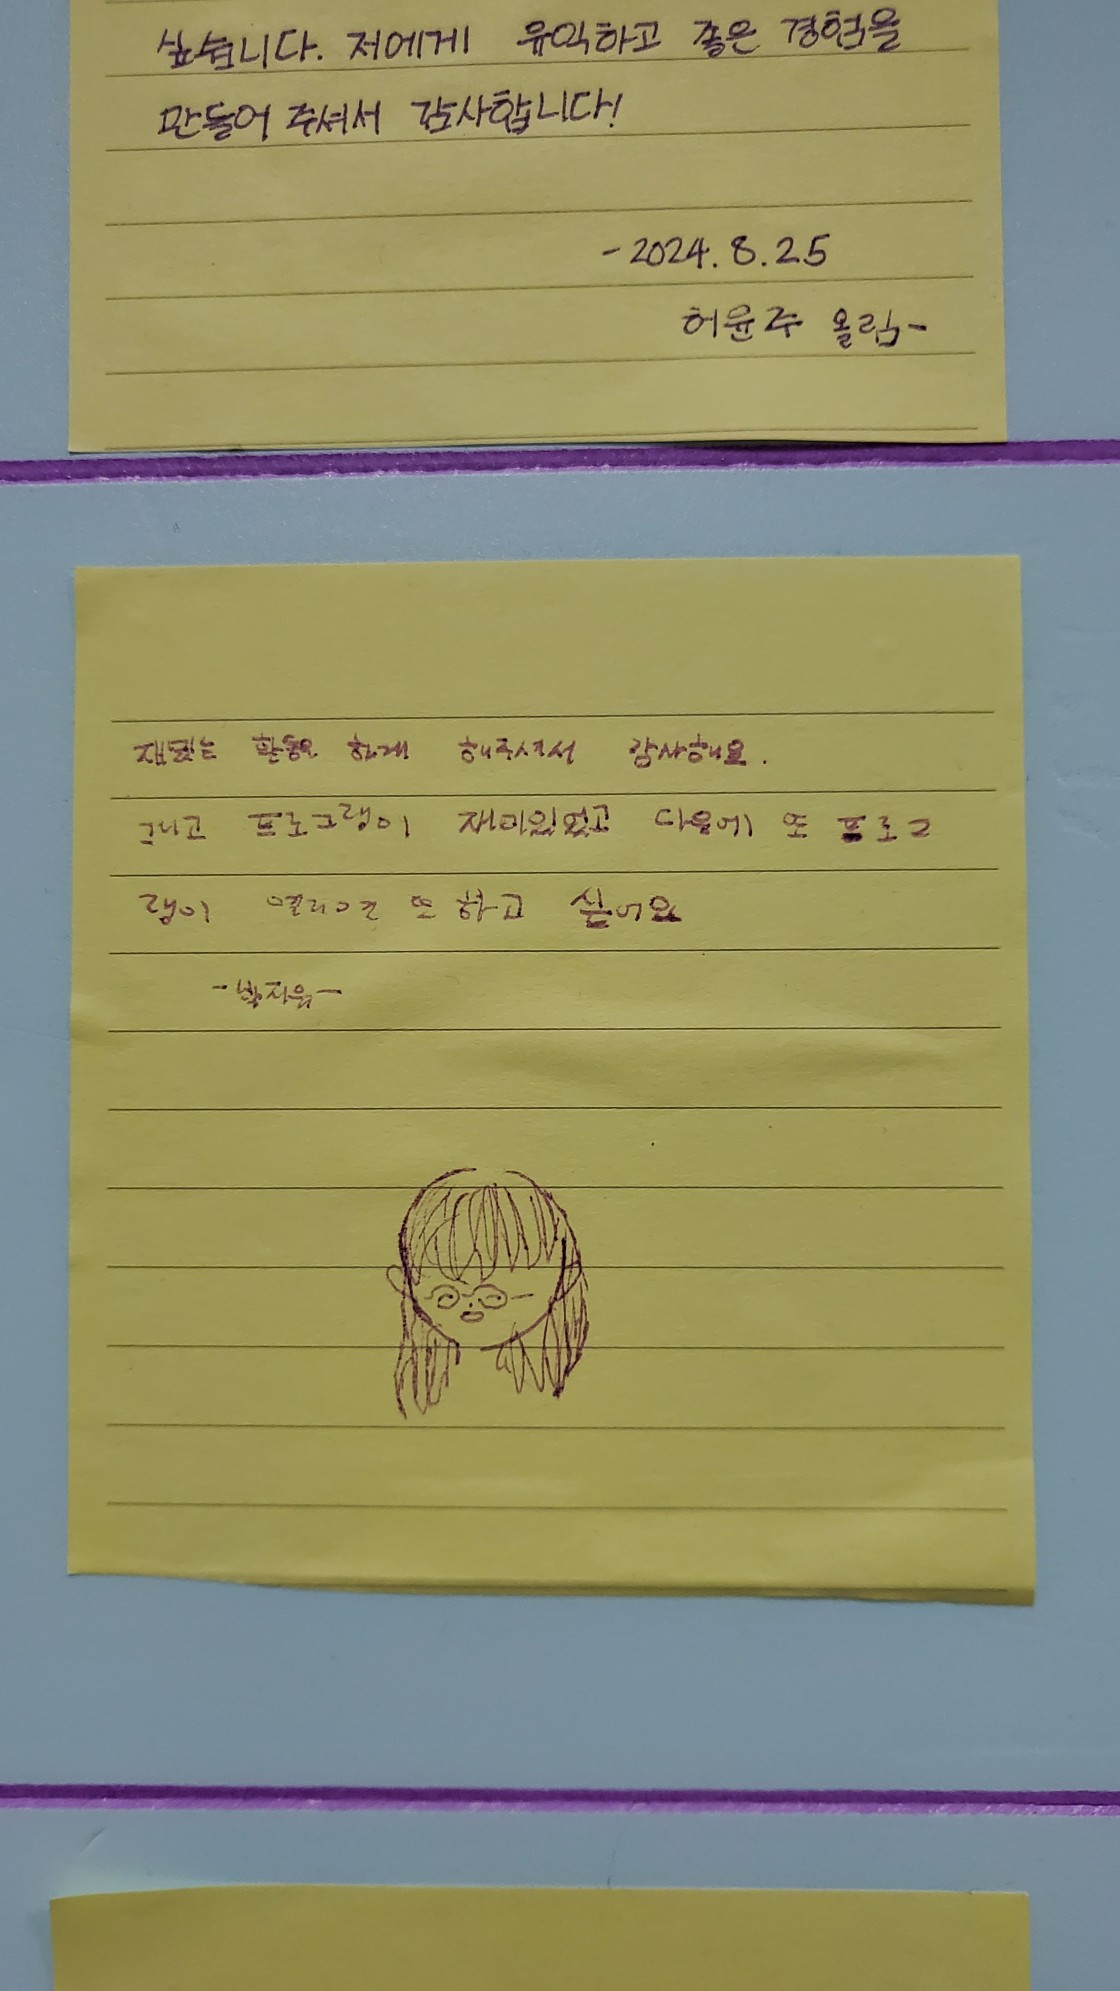 싶습니다. 저에게 유익하고 좋은 경험을
만들어 주셔서 감사합니다!
-2024. 8. 25
허윤주 올림-
하게 해주셔서 감사해요.
그리고 프로그램이 재미있었고 다음에 또 프로그
램이 또 하고 싶어요